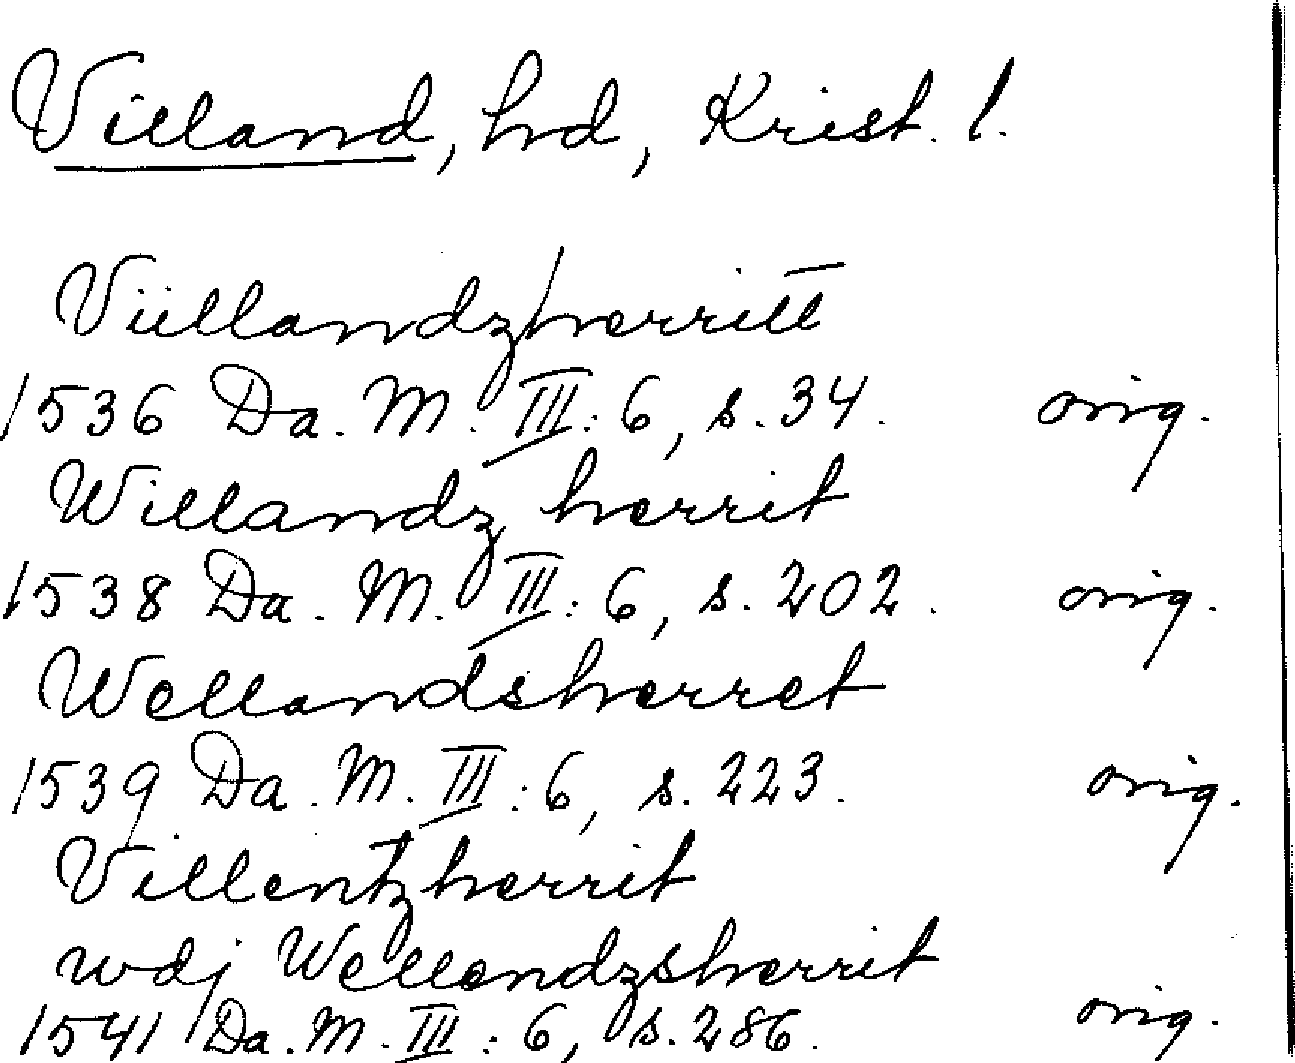 Villand, hd, Krist. l.
Viillandz/herritt
1536 Da. M. III: 6, s. 34. orig.
Willandz herrit
1538 Da. M. III: 6, s. 202. orig.
Wellandsherret
1539 Da. M. III: 6, s. 223. orig.
Villentzherrit
wdj Wellendzsherrit
1541 Da. M. III: 6, s. 286. orig.